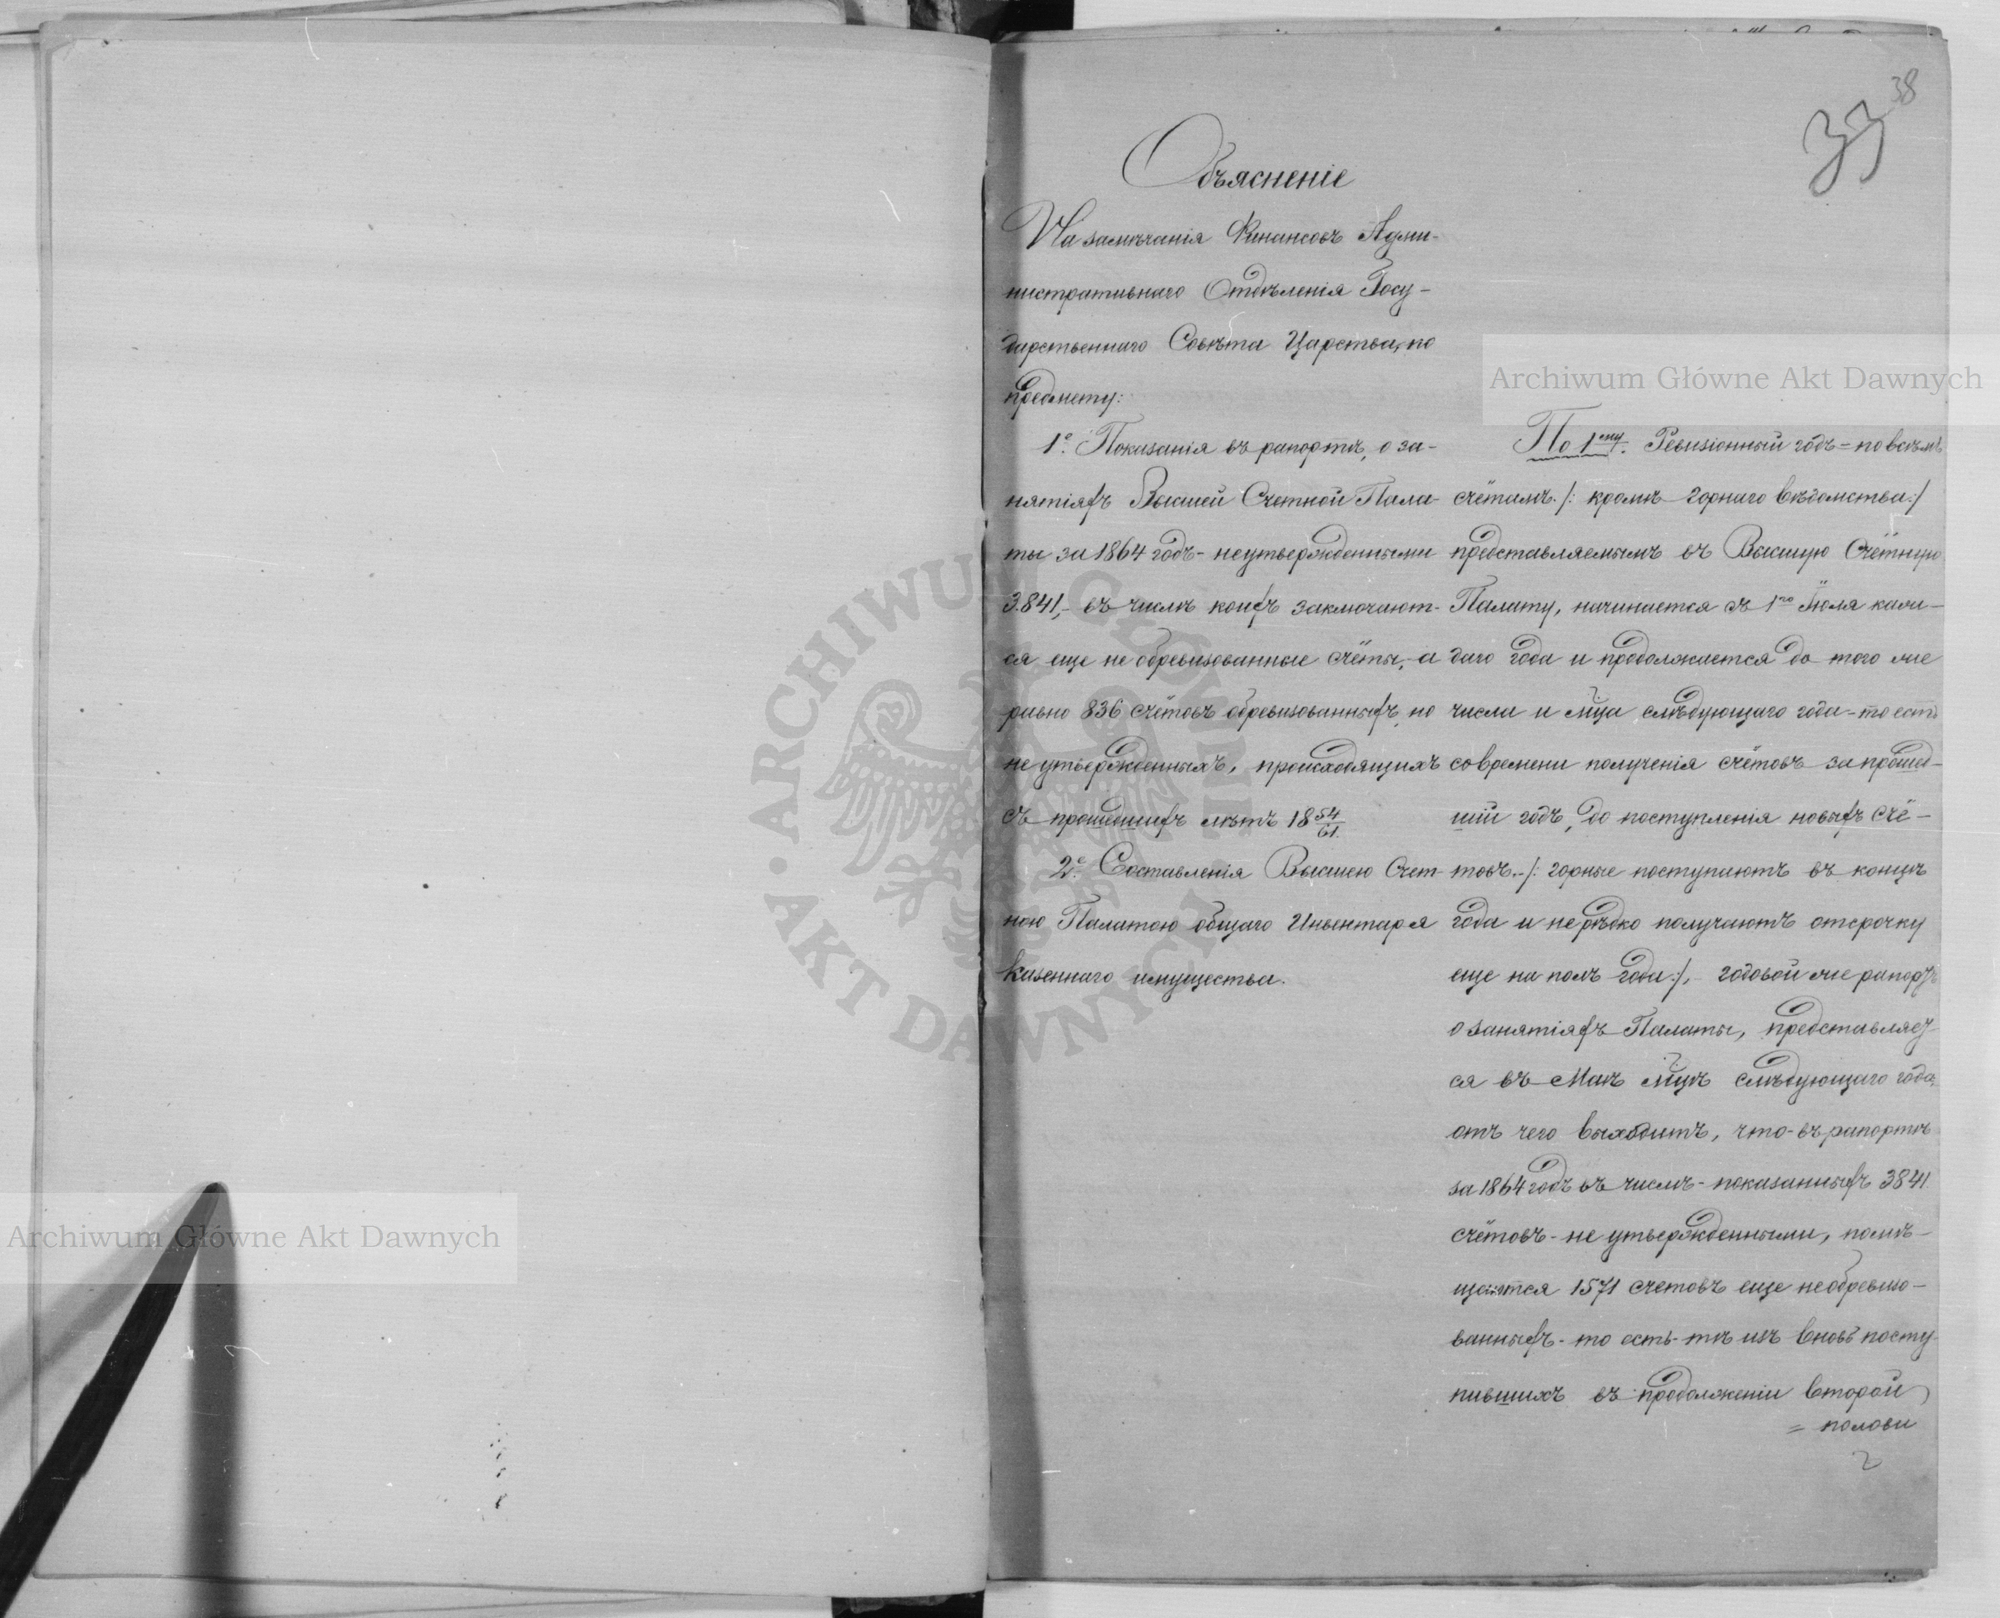 38
33
Объясненіе
На замѣчанія Финансовъ Адми-
нистративнаго Отдѣленія Госу-
дарственнаго Совѣта Царства, по
предмету:
1е. Показанія въ рапортѣ, о за-
нятіяхъ Высшей Счетной Пала-
ты за 1864 годъ - неутвержденными
3.841,- въ числѣ коихъ заключают-
ся еще не обревизованные счёты,- а
равно 836 счётовъ обревизованныхъ, но
не утвержденныхъ, происходящихъ
съ прошедшихъ лѣтъ 18 54/61.
2е. Составленія Высшею Счет-
ною Палатою общаго Инвентаря
казеннаго имущества.
По 1му. Ревизіонный годъ = по всѣмъ
счётамъ /: кромѣ горнаго вѣдомства :/
представляемымъ въ Высшую Счётную
Палату, начинается съ 1го Іюля каж-
даго года и продолжается до того же
числа и мца слѣдующаго года - то есть
со времени полученія счётовъ за прошед-
шій годъ, до поступленія новыхъ счё-
товъ.- /: горные поступаютъ въ концѣ
года и не рѣдко получаютъ отсрочку
еще на полъ года :/,- годовой же рапортъ
о занятіяхъ Палаты, представляет-
ся въ Маѣ мцѣ слѣдующаго года,
отъ чего выходитъ, что - въ рапортѣ
за 1864 годъ въ числѣ - показанныхъ 3841
счётовъ - не утвержденными, помѣ-
щаются 1571 счетовъ еще необревизо-
ванныхъ - то есть - тѣ изъ вновь посту-
пившихъ въ продолженіи второй
= полови
2
Archiwum Główne Akt Dawnych
Archiwum Główne Akt Dawnych
ARCHIWUM GŁÓWNE · AKT DAWNYCH ·